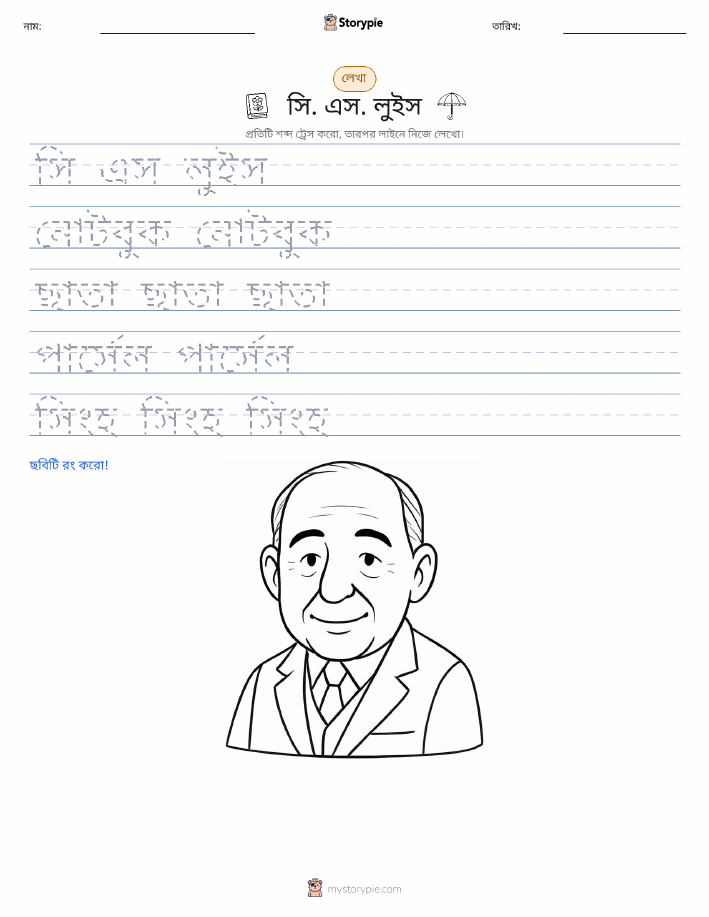 নাম:
Storypie
তারিখ:
লেখা
সি. এস. লুইস
প্রতিটি শব্দ ট্রেস করো, তারপর লাইনে নিজে লেখো।
সি এস লুইস
নোটবুক নোটবুক
ছাতা ছাতা ছাতা
পার্সেল পার্সেল
সিংহ সিংহ সিংহ
ছবিটি রং করো!
mystorypie.com